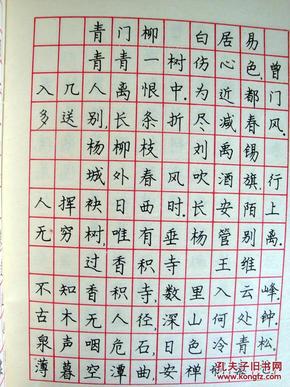 青门柳 白居易
青青一树伤心色,曾
入几人离恨中。为近都门
多送别,长条折尽减春风。
杨柳枝 刘禹锡
城外春风吹酒旗,行
人挥袂日西时。长安陌上
无穷树,唯有垂杨管别离。
过香积寺 王维
不知香积寺,数里入云峰。
古木无人径,深山何处钟。
泉声咽危石,日色冷青松。
薄暮空潭曲,安禅